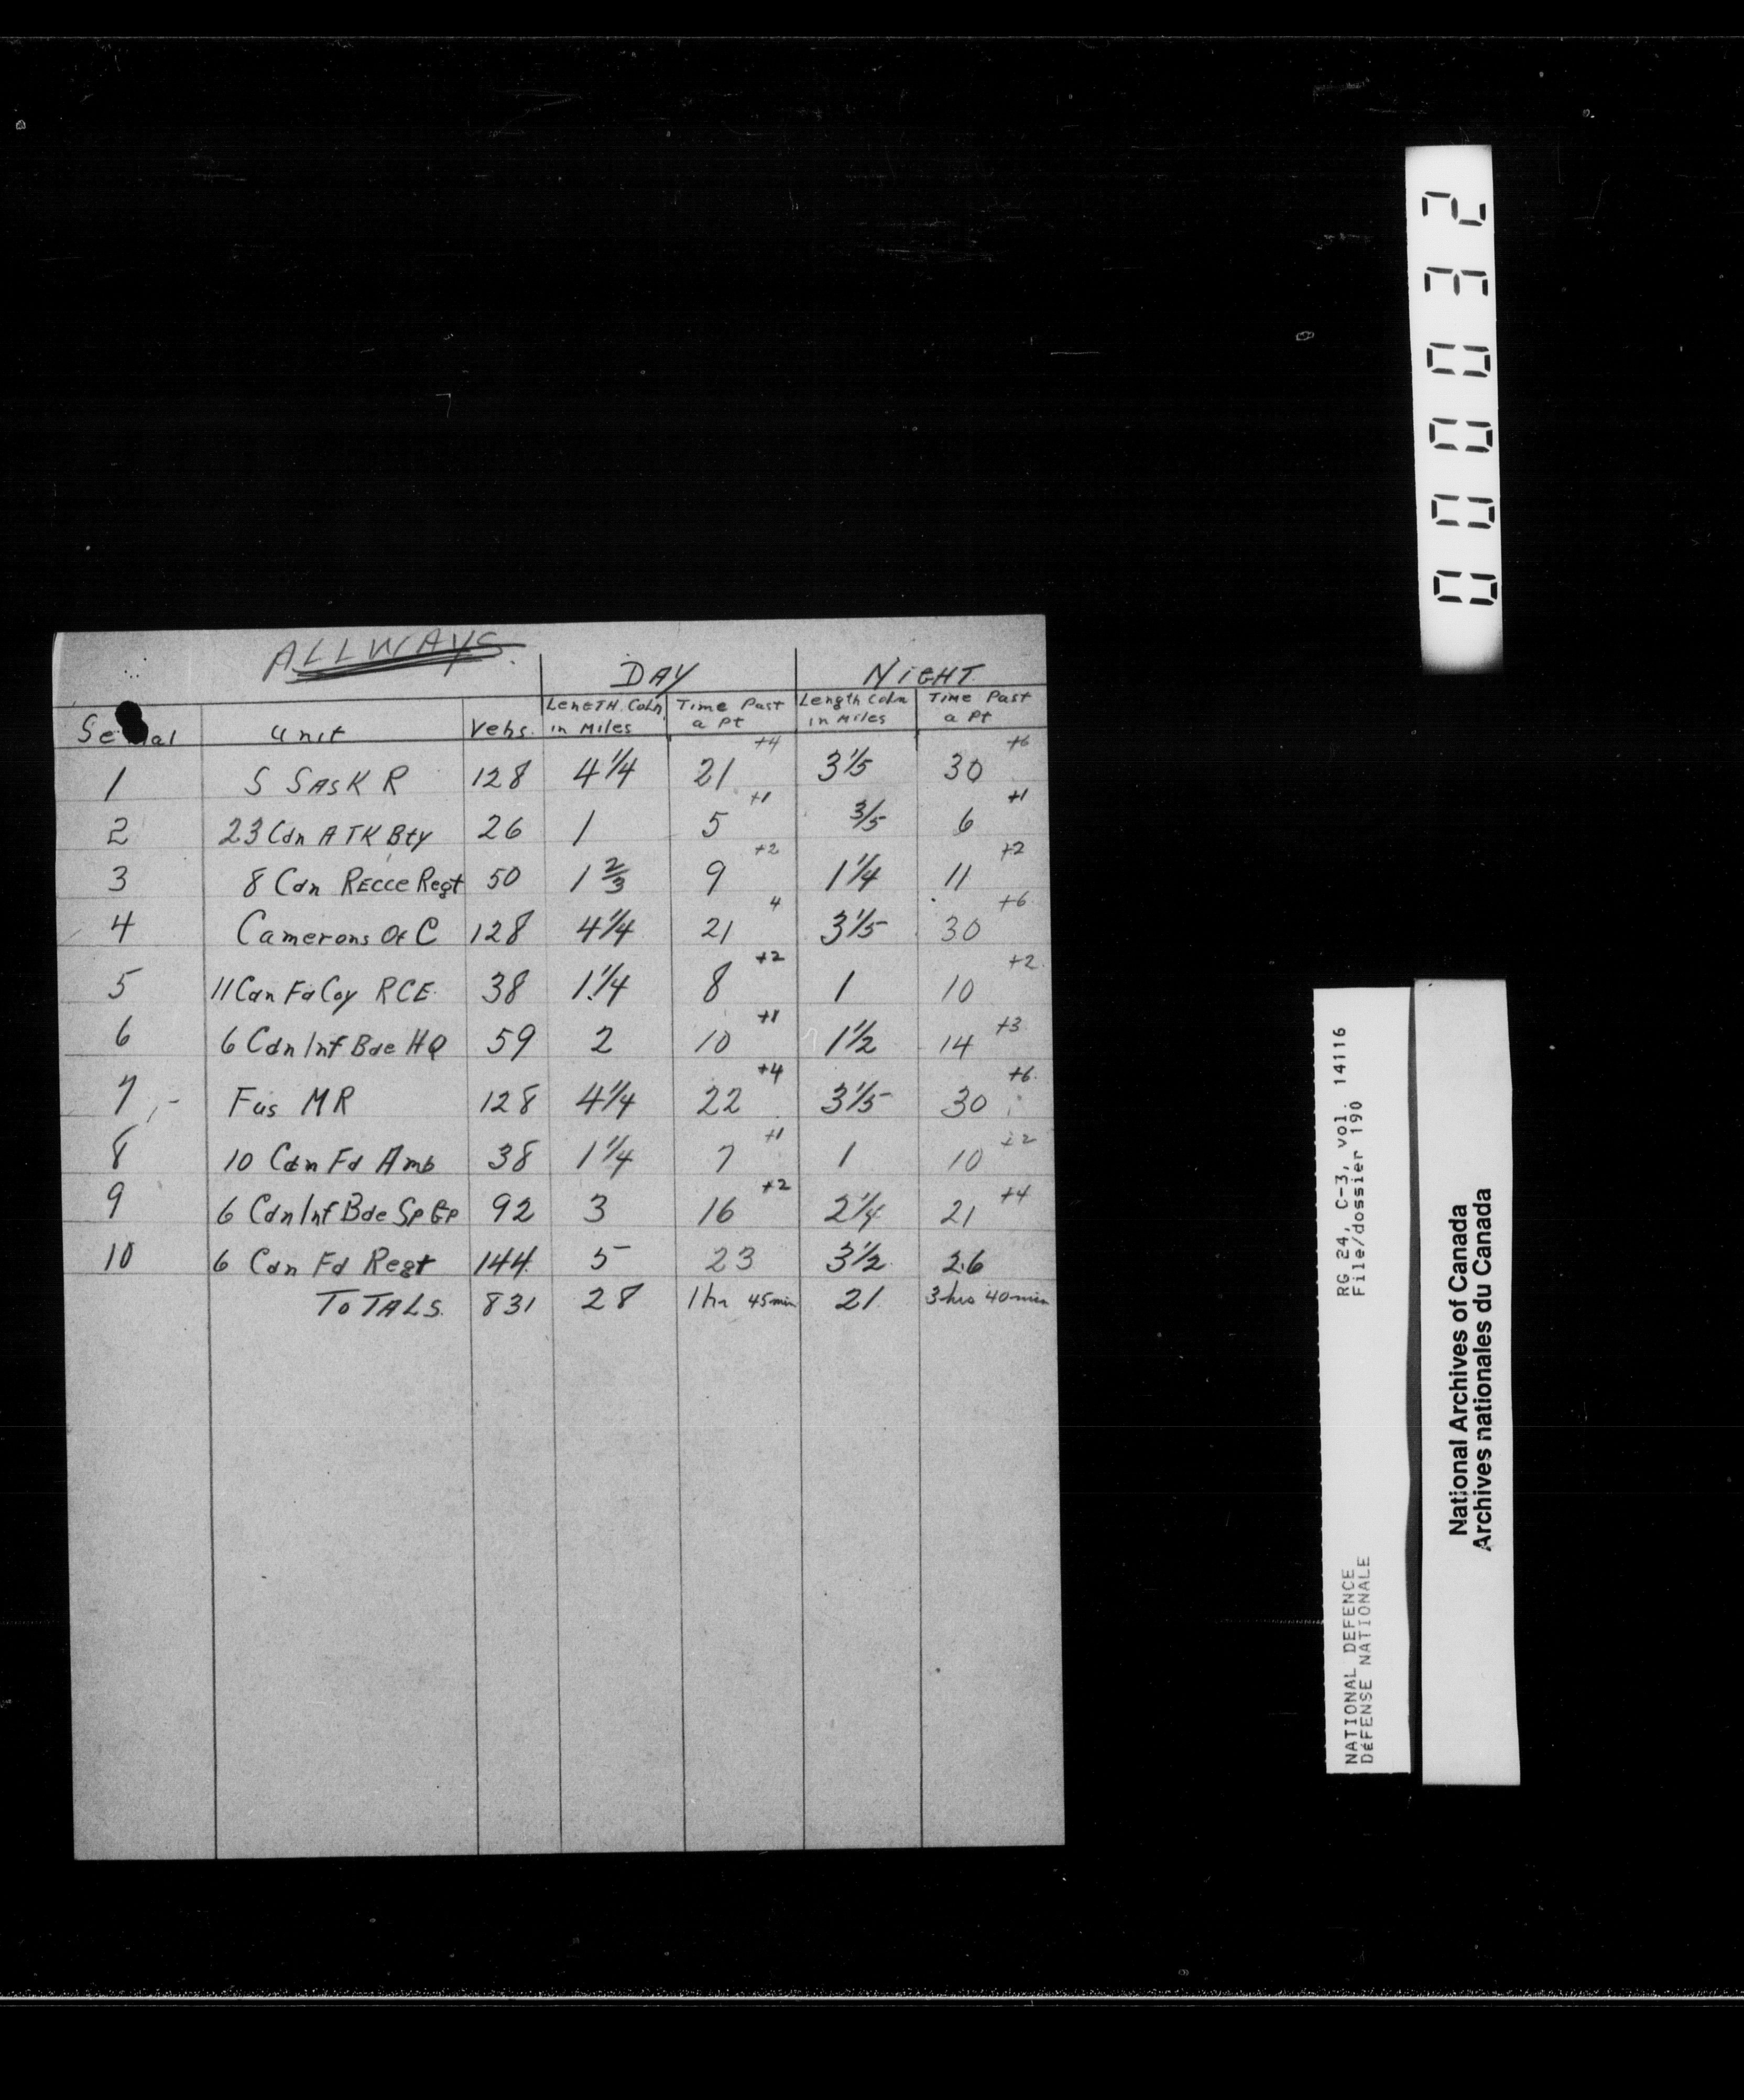 ALLWAYS.
DAY NIGHT
Serial Unit Vehs. LENGTH Coln in Miles Time Past a Pt Length Coln in Miles Time Past a Pt
1 S SASK R 128 4 1/4 21 +4 3 1/5 30 +6
2 23 Cdn A TK Bty 26 1 5 +1 3/5 6 +1
3 8 Cdn RECCE Regt 50 1 2/3 9 +2 1 1/4 11 +2
4 Camerons Of C 128 4 1/4 21 4 3 1/5 30 +6
5 11 Cdn Fd Coy RCE. 38 1 1/4 8 +2 1 10 +2
6 6 Cdn Inf Bde HQ 59 2 10 +1 1 1/2 14 +3
7 Fus MR 128 4 1/4 22 +4 3 1/5 30 +6
8 10 Cdn Fd Amb 38 1 1/4 7 +1 1 10 +2
9 6 Cdn Inf Bde Sp Gp 92 3 16 +2 2 1/4 21 +4
10 6 Cdn Fd Regt 144 5 23 3 1/2 26
TOTALS. 831 28 1 hr 45 min 21 3 hrs 40 min
000032
RG 24, C-3, vol. 14116
File/dossier 190
NATIONAL DEFENCE
DÉFENSE NATIONALE
National Archives of Canada
Archives nationales du Canada